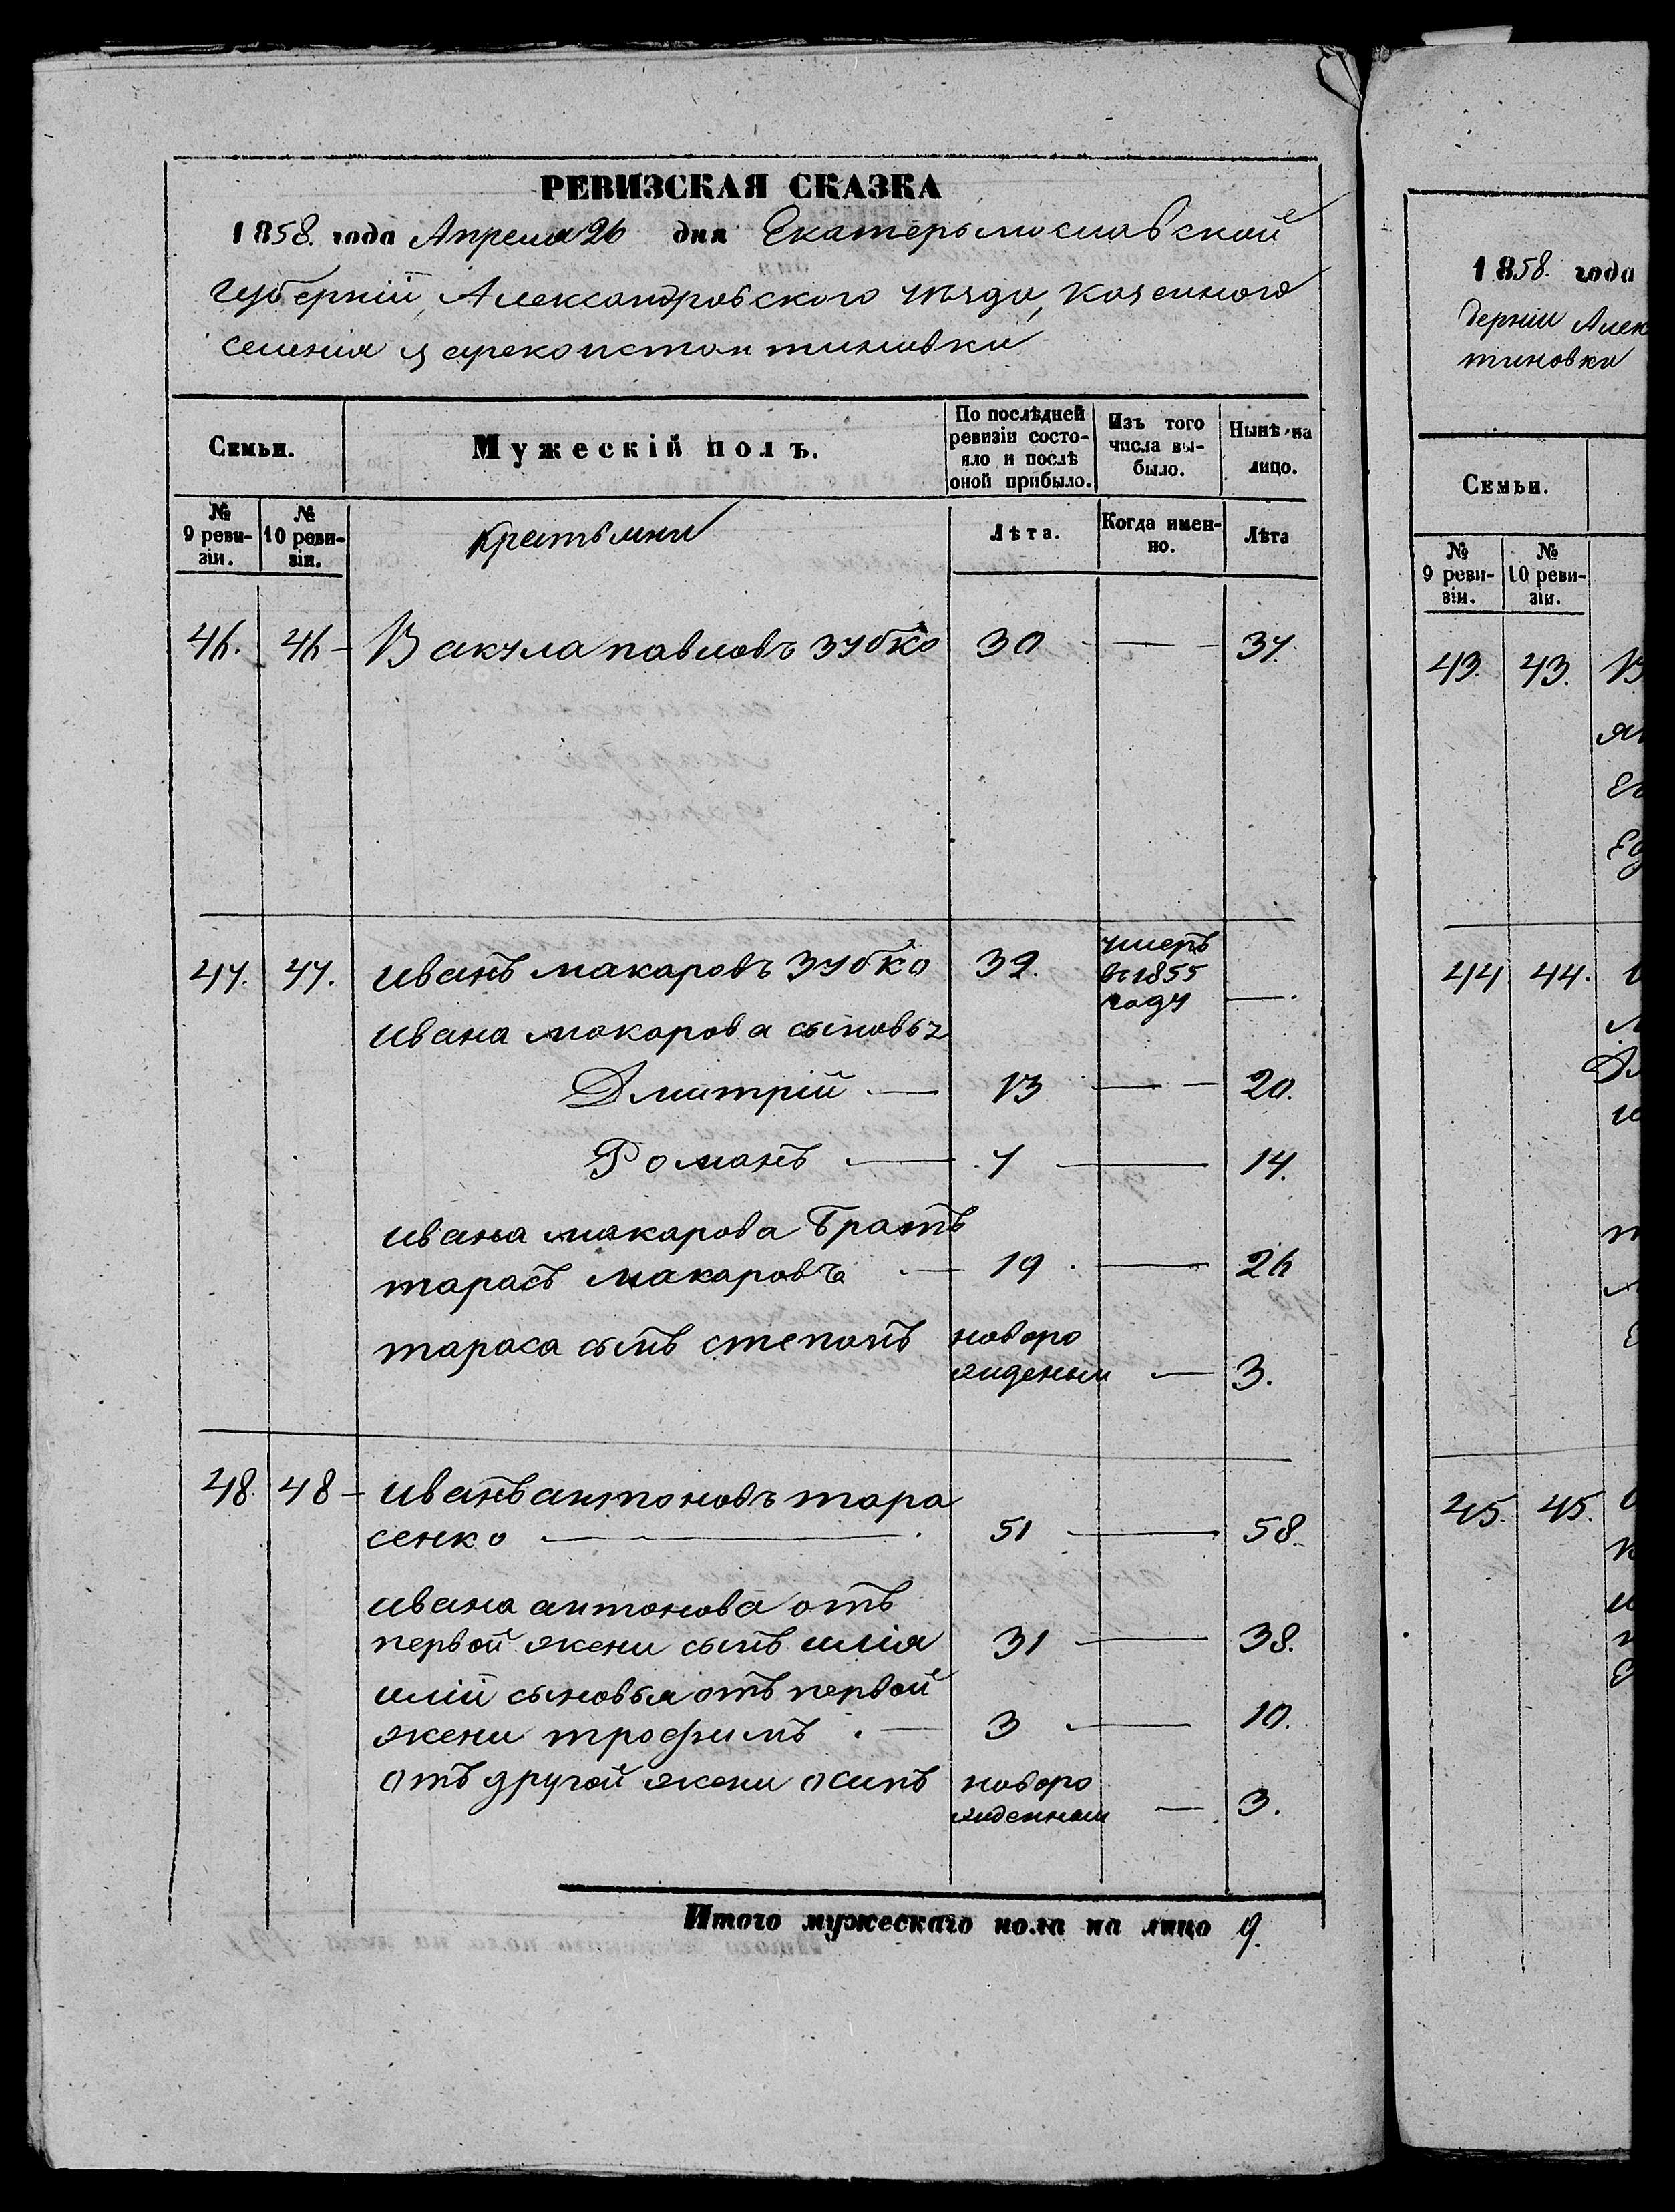 РЕВИЗСКАЯ СКАЗКА
1858. года Апреля 26 дня Екатерынославской
Губерніи, Александровского уезда, Казенного
селенія Цареконстантиновки
Семьи.
Мужескій полъ.
По послѣдней
ревизіи состо-
яло и послѣ
оной прибыло.
Изъ того
числа вы-
было.
Нынѣ на
лицо.
№
9 реви-
зіи.
№
10 реви-
зіи.
Крестьяни
Лѣта.
Когда имен-
но.
Лѣта
46. 46 Вакула павловъ зубко 30 — 37.
47. 47. иванъ макаровъ зубко 39. умеръ
въ 1855
году —.
ивана макарова сыновья
Дмитрій — 13 — 20.
Романъ — 7 — 14.
ивана макарова братъ
тарасъ макаровъ — 19 — 26
тараса сынъ степанъ новоро
жденыи — 3.
48. 48 иванъ антоновъ тара
сенко — 51 — 58.
ивана антонова отъ
первой жени сынъ илія 31 — 38.
иліи сыновья отъ первой
жени трофимъ — 3 — 10.
отъ другой жени осипъ новоро
жденныи — 3.
Итого мужескаго пола на лицо 9.
1858. года
берніи Алек
тиновки
Семьи.
№
9 реви-
зіи.
№
10 реви-
зіи.
43. 43.
44 44.
45. 45.